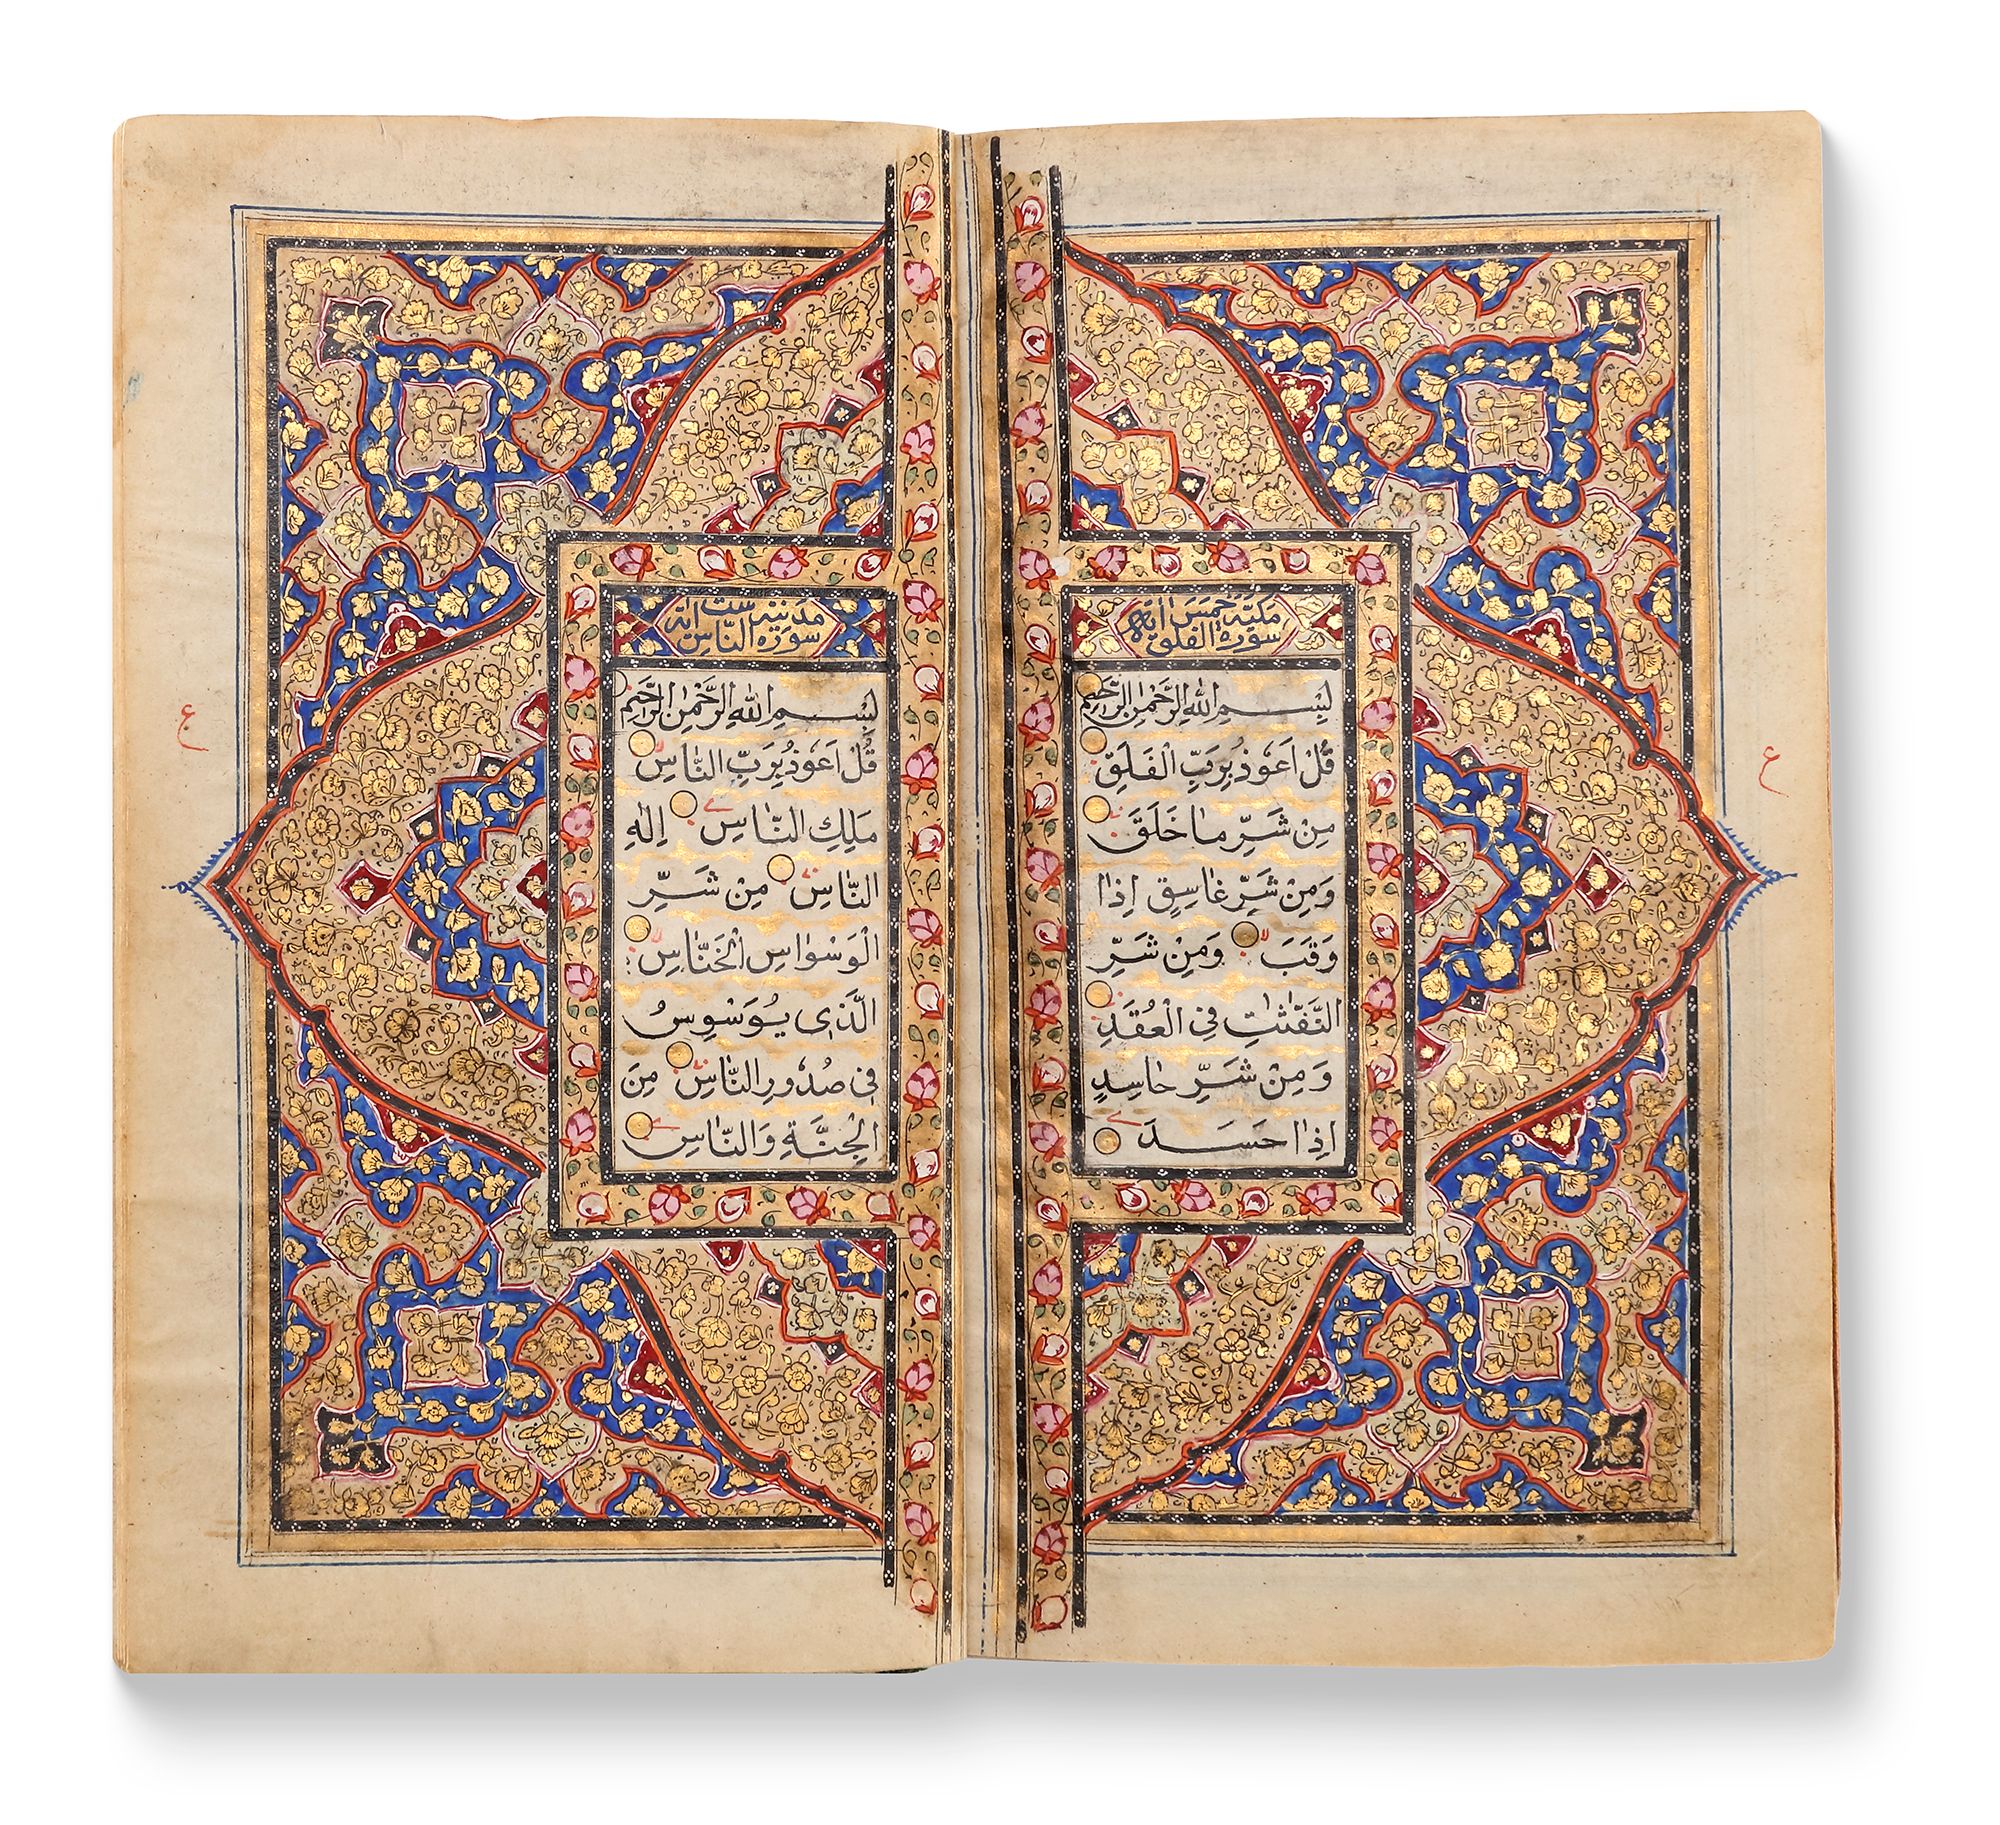 سورة الفلق
مكية خمس اٰية
بِسْمِ اللّٰهِ الرَّحْمٰنِ الرَّحِيْمِ
قُلْ اَعُوْذُ بِرَبِّ الْفَلَقِ
مِنْ شَرِّ مَا خَلَقَ
وَمِنْ شَرِّ غَاسِقٍ اِذَا
وَقَبَ وَمِنْ شَرِّ
النَّفّٰثٰتِ فِي الْعُقَدِ
وَمِنْ شَرِّ حَاسِدٍ
اِذَا حَسَدَ
ع
سورة الناس
مدنية ست اية
بِسْمِ اللّٰهِ الرَّحْمٰنِ الرَّحِيْمِ
قُلْ اَعُوْذُ بِرَبِّ النَّاسِ
مَلِكِ النَّاسِ اِلٰهِ
النَّاسِ مِنْ شَرِّ
الْوَسْوَاسِ الْخَنَّاسِ
الَّذِي يُوَسْوِسُ
فِي صُدُوْرِ النَّاسِ مِنَ
الْجِنَّةِ وَالنَّاسِ
ع